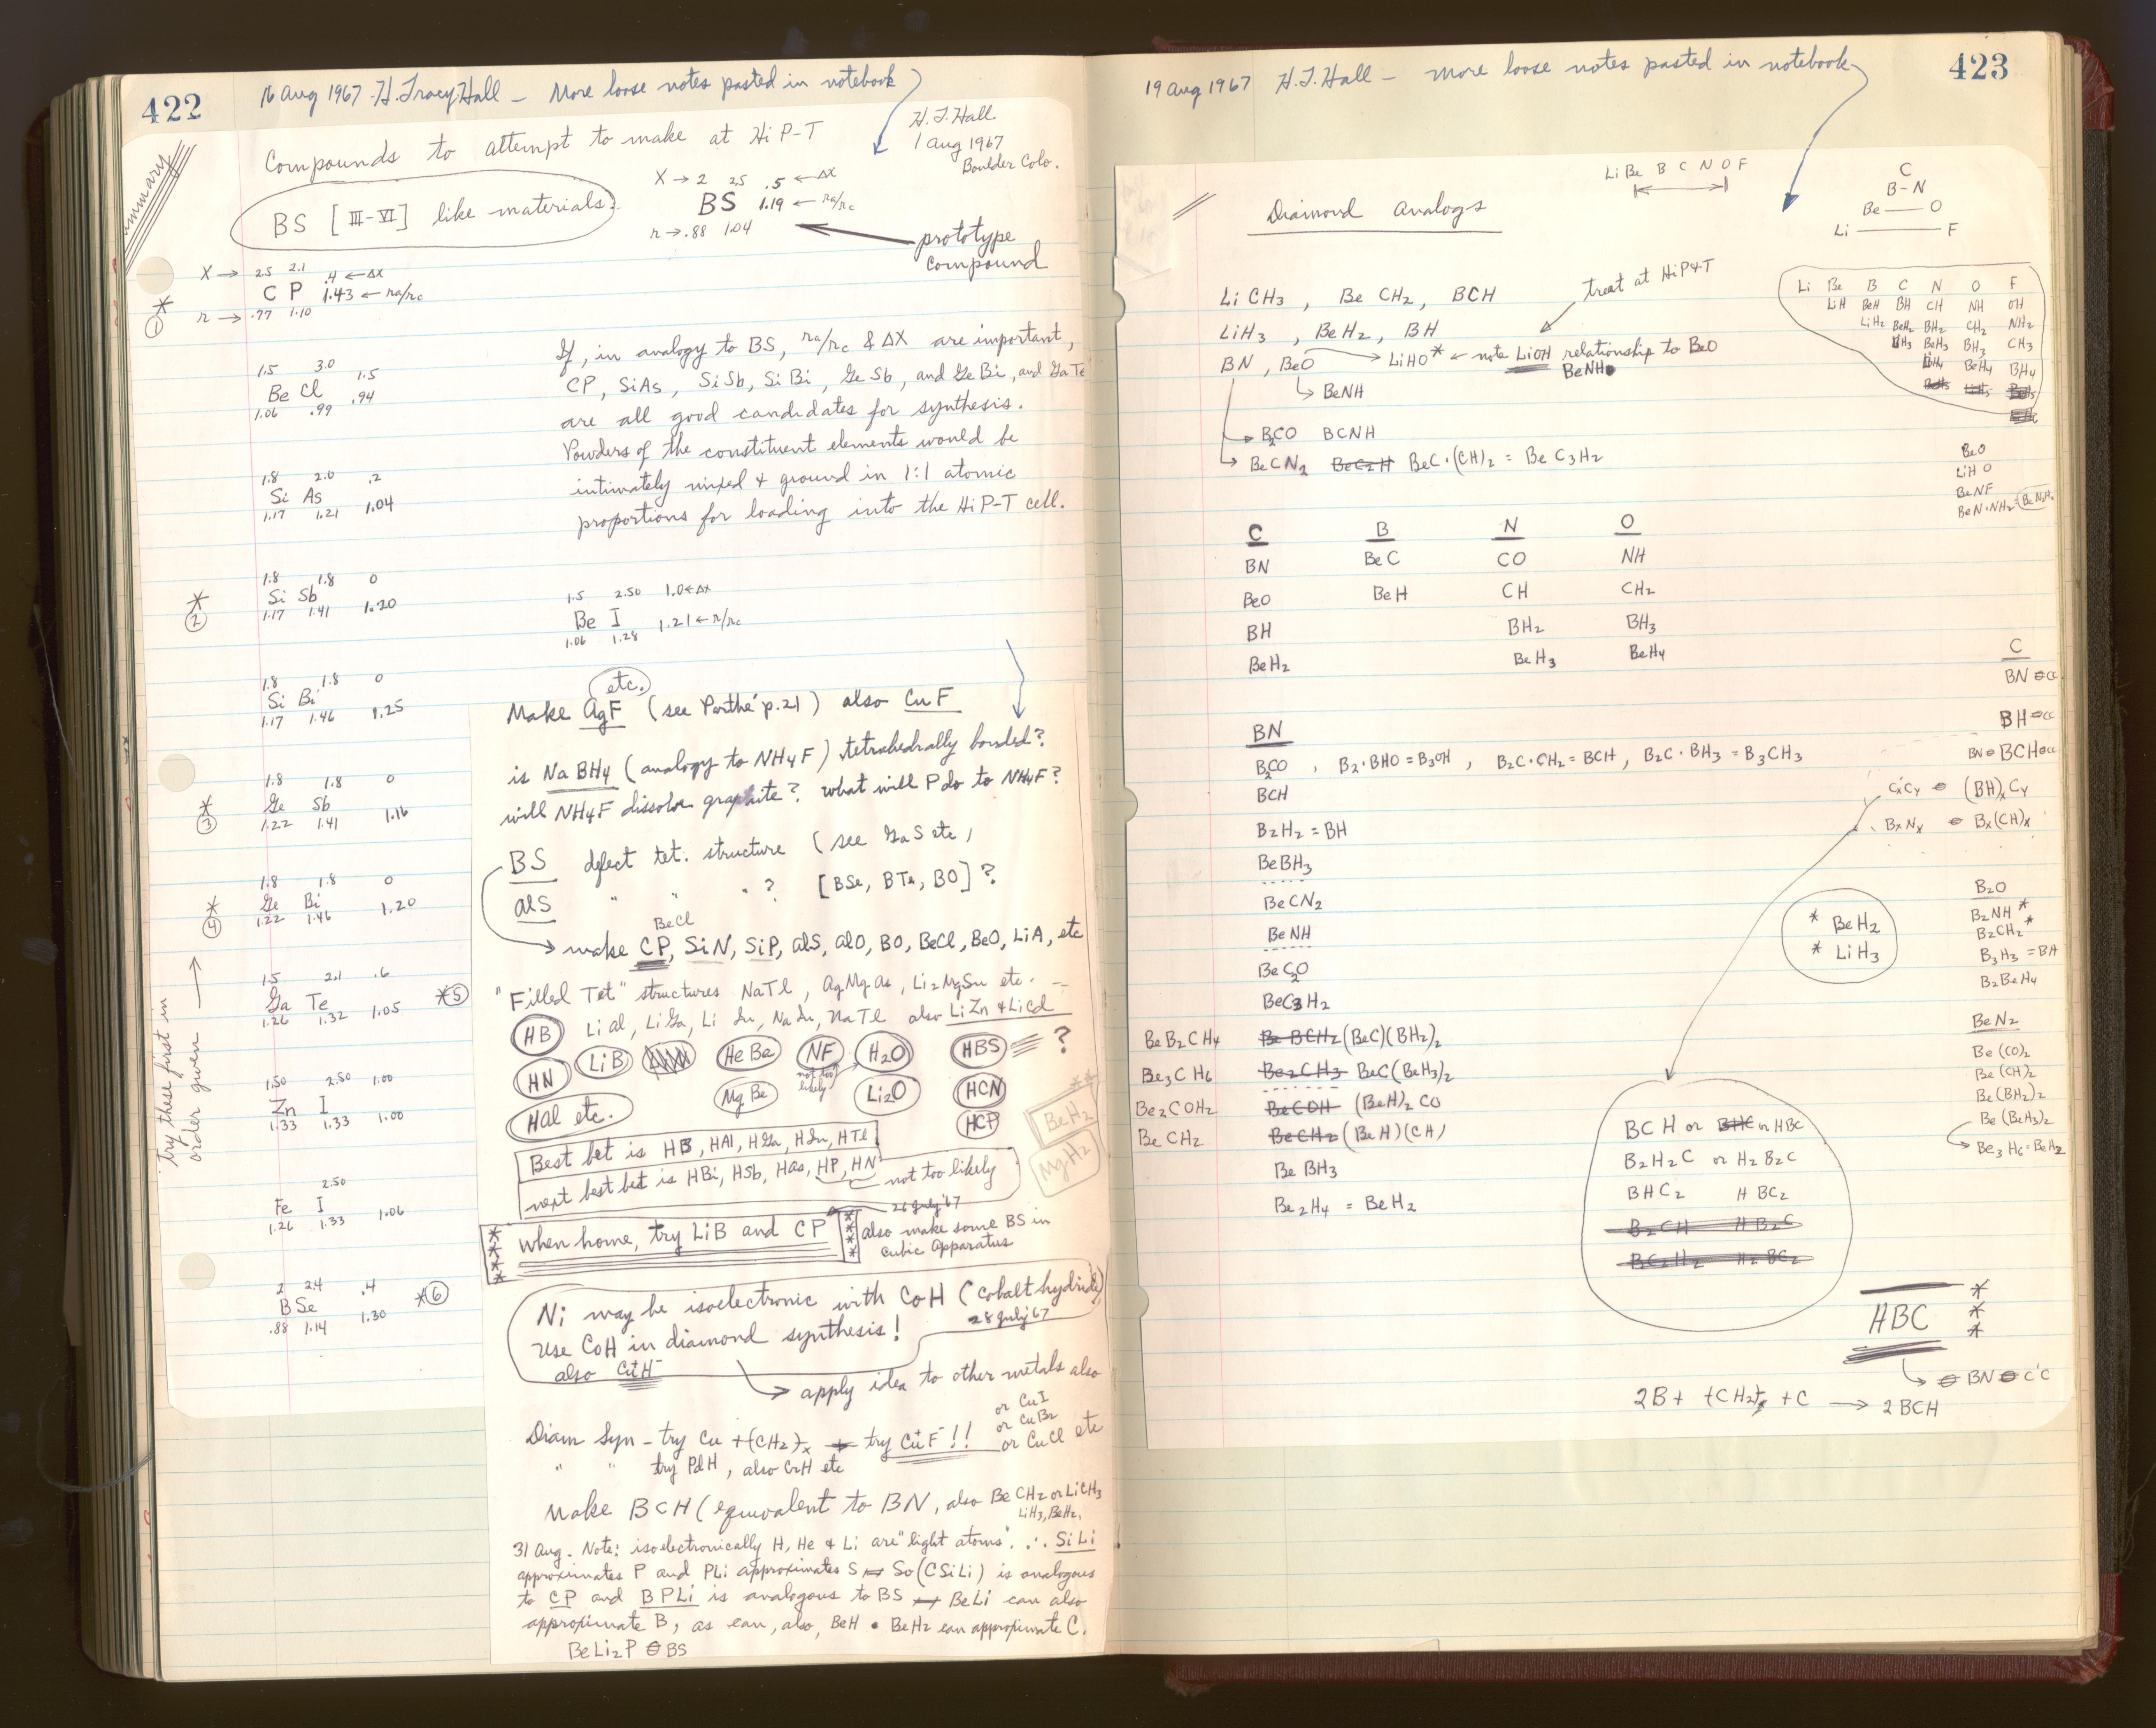 422
16 Aug 1967 - H. Tracy Hall - More loose notes pasted in notebook
Summary
Compounds to attempt to make at Hi P-T
H.T. Hall
1 Aug 1967
Boulder Colo.
BS [III-VI] like materials.
X → 2 2.5 .5 ← ΔX
BS 1.19 ← ra/rc
r → .88 1.04
prototype
compound
X → 2.5 2.1 .4 ← ΔX
* ① C P 1.43 ← ra/rc
r → .77 1.10
If, in analogy to BS, ra/rc & ΔX are important,
CP, SiAs, SiSb, SiBi, GeSb, and GeBi, and GaTe
are all good candidates for synthesis.
Powders of the constituent elements would be
intimately mixed & ground in 1:1 atomic
proportions for loading into the Hi P-T cell.
1.5 3.0 1.5
Be Cl
1.06 .99 .94
1.8 2.0 .2
Si As
1.17 1.21 1.04
1.8 1.8 0
* ② Si Sb
1.17 1.41 1.20
1.5 2.50 1.0 ← ΔX
Be I 1.21 ← r/rc
1.06 1.28
1.8 1.8 0
Si Bi
1.17 1.46 1.25
1.8 1.8 0
* ③ Ge Sb
1.22 1.41 1.16
1.8 1.8 0
* ④ Ge Bi
1.22 1.46 1.20
1.5 2.1 .6
Ga Te *⑤
1.26 1.32 1.05
1.50 2.50 1.00
Zn I
1.33 1.33 1.00
2.50
Fe I
1.26 1.33 1.06
2 2.4 .4
B Se *⑥
.88 1.14 1.30
try these first in
order given →
etc.
Make AgF (see Parthé p.21) also CuF
is NaBH4 (analogy to NH4F) tetrahedrally bonded?
will NH4F dissolve graphite? what will P do to NH4F?
BS defect tet. structure (see GaS etc)
AlS " " " ? [BSe, BTe, BO]?
BeCl
→ make CP, SiN, SiP, AlS, AlO, BO, BeCl, BeO, LiA, etc
"Filled Tet" structures NaTl, AgMgAs, Li2MgSn etc. -
HB LiAl, LiGa, LiIn, NaIn, NaTl also LiZn & LiCd
HN LiB HeBe NF H2O HBS ?
not too
likely
HAl etc. MgBe Li2O HCN
HCP
BeH2 **
MgH2
Best bet is HB, HAl, HGa, HIn, HTl
next best bet is HBi, HSb, HAs, HP, HN not too likely
26 July '67
**** when home, try LiB and CP **** also make some BS in
cubic apparatus
Ni may be isoelectronic with CoH (Cobalt hydride)
28 July 67
Use CoH in diamond synthesis!
also Cu+H-
→ apply idea to other metals also
or CuI
or CuBr
Diam Syn - try Cu + (CH2)x try Cu+F- !! or CuCl etc
" " try PdH, also CrH etc
Make BCH (equivalent to BN, also BeCH2 or LiCH3
LiH3, BeH2,
31 Aug. Note: isoelectronically H, He & Li are "light atoms". ∴ SiLi
approximates P and PLi approximates S So (CSiLi) is analogous
to CP and BPLi is analogous to BS BeLi can also
approximate B, as can, also, BeH • BeH2 can approximate C.
BeLi2P ⊖ BS
423
19 Aug 1967 H.T. Hall - More loose notes pasted in notebook
Li Be B C N O F
C
B-N
Be — O
Li — F
Diamond Analogs
LiCH3, BeCH2, BCH
treat at Hi P&T
LiH3, BeH2, BH
BN, BeO → LiHO* ← note LiOH relationship to BeO
BeNH
↳ BeNH
→ B2CO BCNH
→ BeCN2 BeC2H BeC·(CH)2 = BeC3H2
Li Be B C N O F
LiH BeH BH CH NH OH
LiH2 BeH2 BH2 CH2 NH2
LiH3 BeH3 BH3 CH3
LiH4 BeH4 BH4
BeO
LiHO
BeNF
BeN·NH2 = BeN2H2
C B N O
BN BeC CO NH
BeO BeH CH CH2
BH BH2 BH3
BeH2 BeH3 BeH4
C
BN ⊖ CC
BH ⊖ CC
BN ⊖ BCH ⊖ CC
BN
B2CO, B2·BHO = B3OH, B2C·CH2 = BCH, B2C·BH3 = B3CH3
BCH
B2H2 = BH
BeBH3
BeCN2
BeNH
BeC2O
BeC3H2
CxCy ⊖ (BH)xCy
BxNx ⊖ Bx(CH)x
* BeH2
* LiH3
B2O
B2NH *
B2CH2 *
B3H3 = BH
B2BeH4
BeN2
Be(CO)2
Be(CH)2
Be(BH2)2
Be(BeH3)2
→ Be3H6 = BeH2
BeB2CH4 Be BCH2 (BeC)(BH2)2
Be3CH6 Be2CH3 BeC(BeH3)2
Be2COH2 BeCOH (BeH)2CO
BeCH2 BeCH2 (BeH)(CH)
BeBH3
Be2H4 = BeH2
BCH or BHC or HBC
B2H2C or H2B2C
BHC2 HBC2
B2CH HB2C
BC2H2 H2BC2
HBC ***
→ ⊖ BN ⊖ C'C
2B + (CH2)x + C → 2BCH